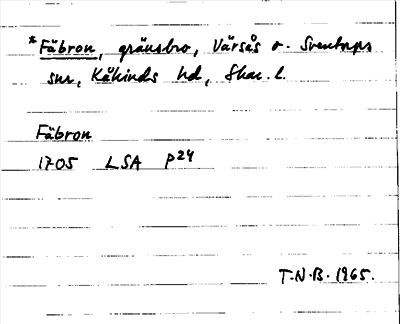 *Fäbron, gränsbro, Värsås o. Sventorps
snr, Kåkinds hd, Skar. l.
Fäbron
1705 LSA P24
T.N.B. 1965.